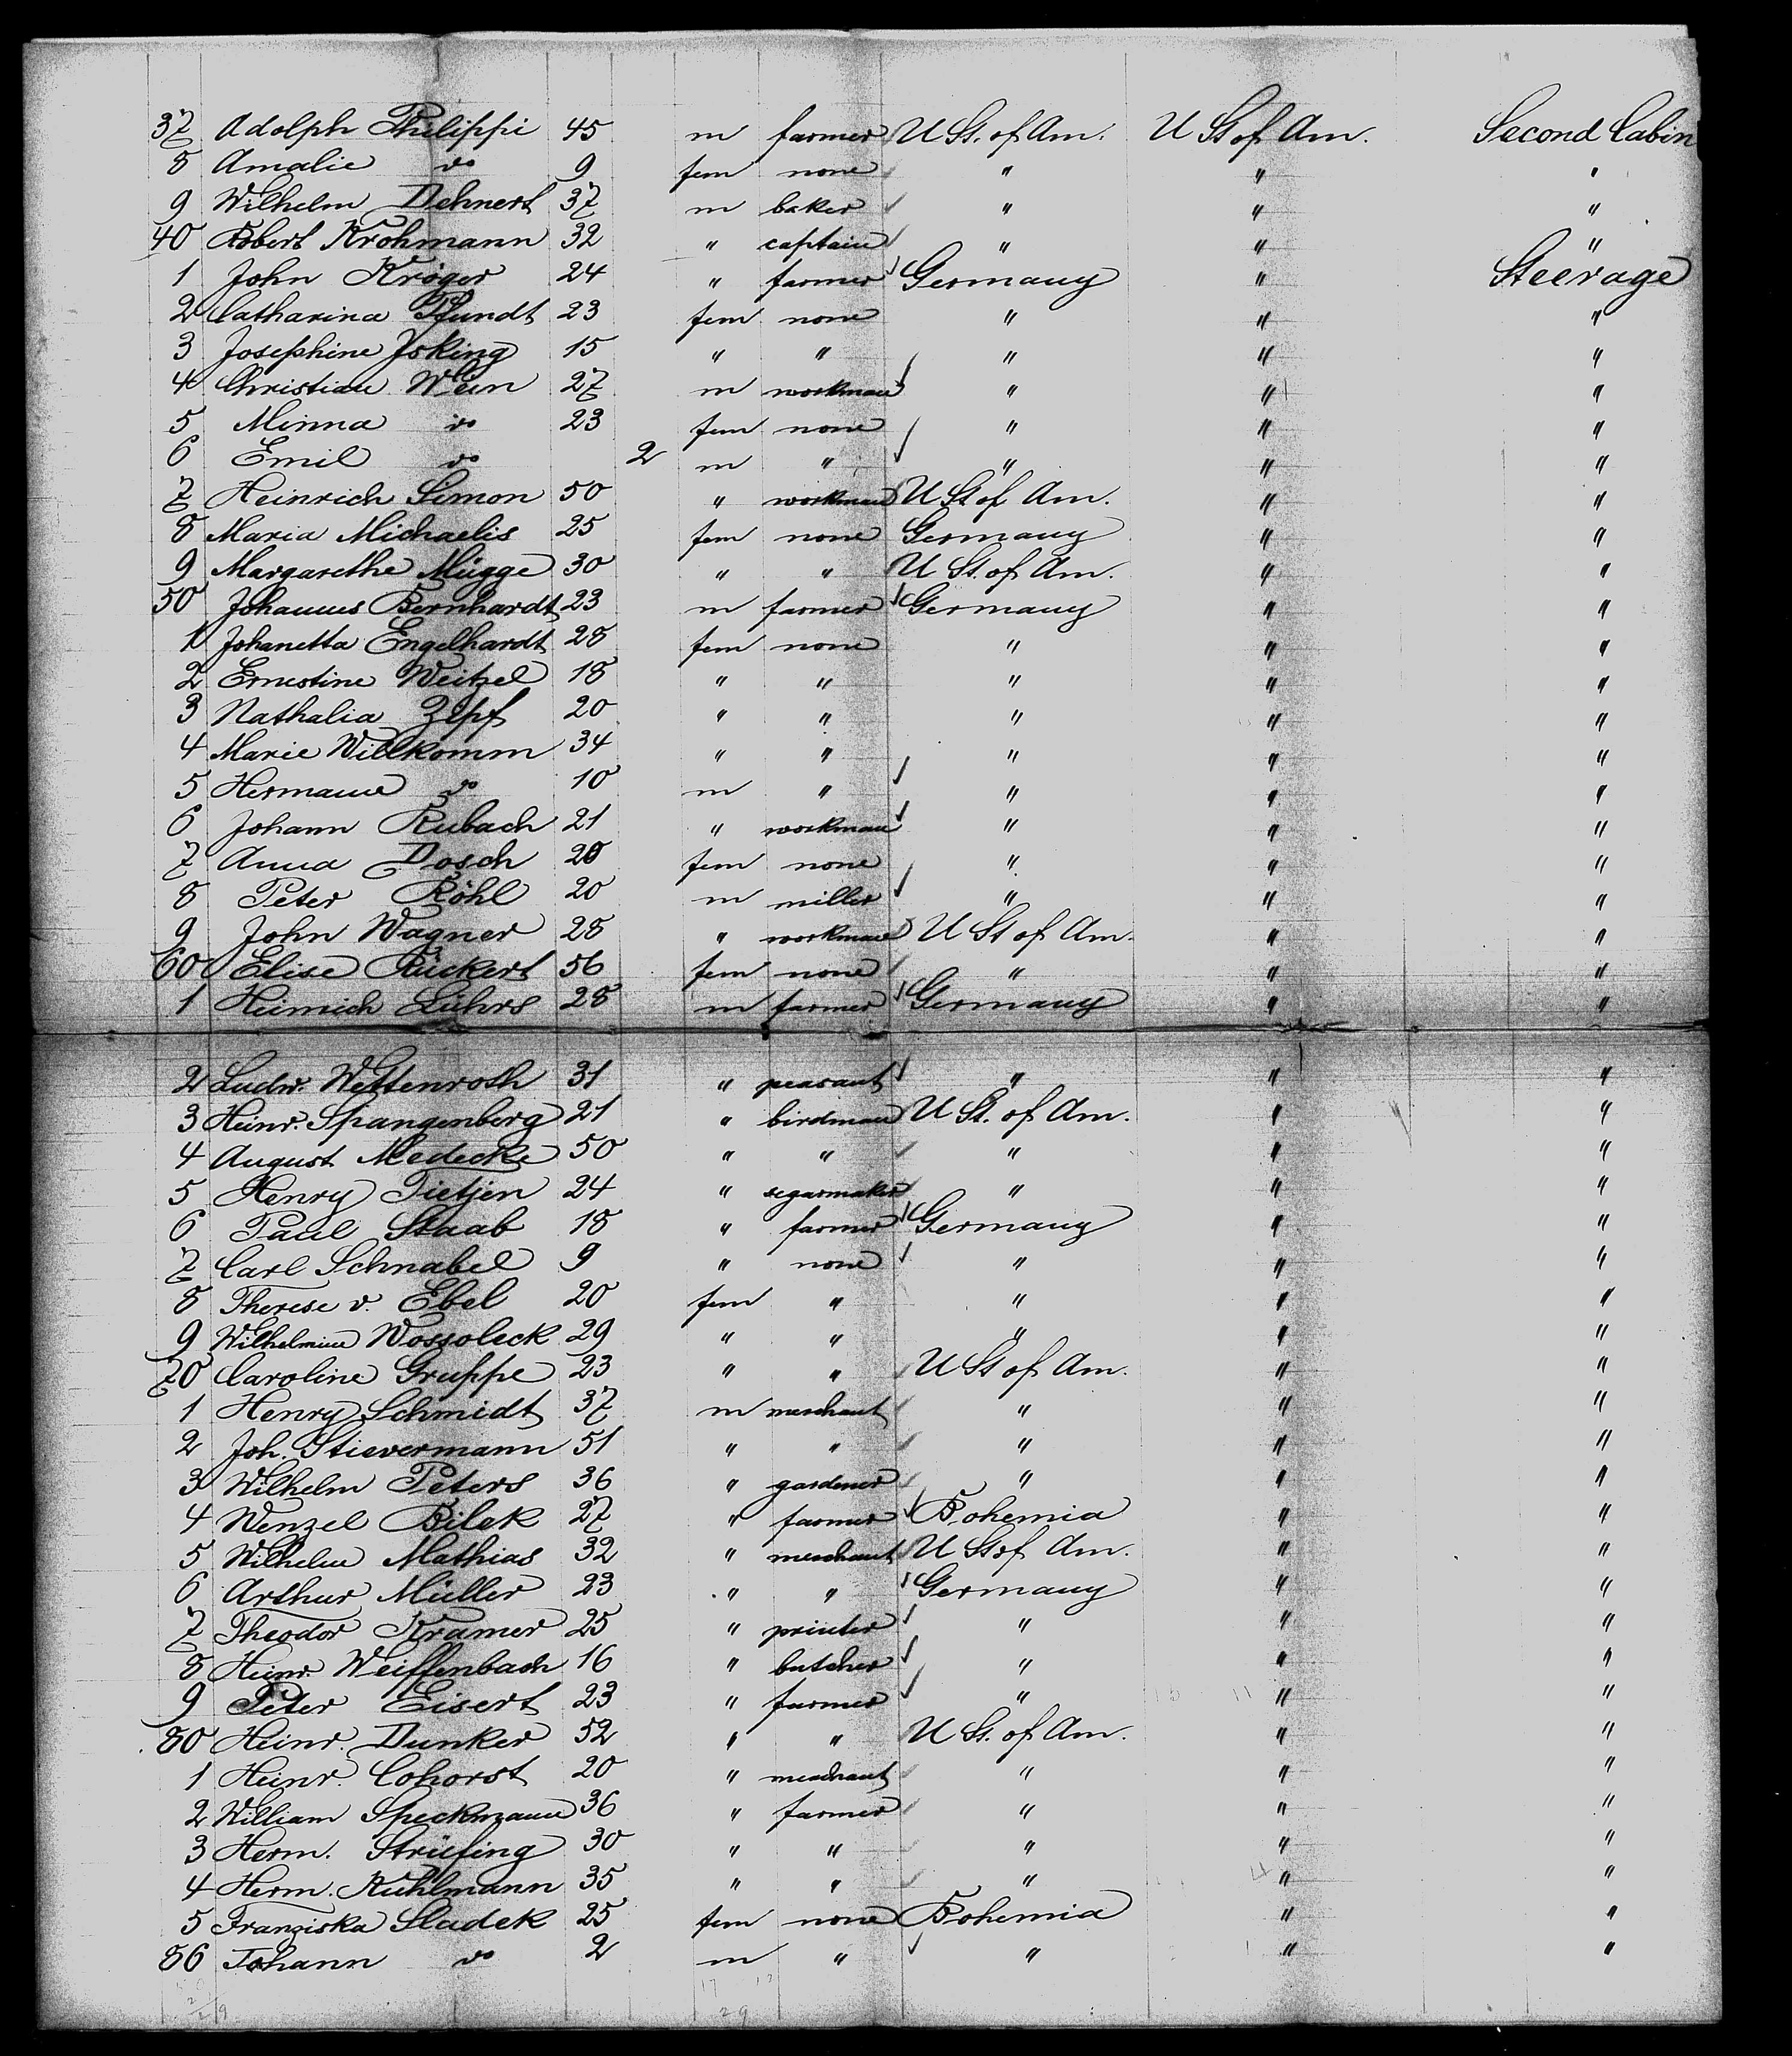 37 Adolph Philippi 45 m farmer U St. of Am. U St of Am. Second Cabin
8 Amalie do 9 fem none " " "
9 Wilhelm Dehnert 37 m baker " " "
40 Robert Krohmann 32 " captain " " "
1 John Kröger 24 " farmer Germany " Steerage
2 Catharina Pfundt 23 fem none " " "
3 Josephine Jsking 15 " " " " "
4 Christian Wein 27 m workman " " "
5 Minna do 23 fem none " " "
6 Emil do 2 m " " " "
7 Heinrich Simon 50 " workman U St of Am. " "
8 Maria Michaelis 25 fem none Germany " "
9 Margarethe Mügge 30 " " U St. of Am. " "
50 Johannes Bernhardt 23 m farmer Germany " "
1 Johanetta Engelhardt 28 fem none " " "
2 Ernestine Weitzel 18 " " " " "
3 Nathalia Zepf 20 " " " " "
4 Marie Willkomm 34 " " " " "
5 Hermann do 10 m " " " "
6 Johann Rubach 21 " workman " " "
7 Anna Dosch 20 fem none " " "
8 Peter Röhl 20 m miller " " "
9 John Wagner 28 " workman U St of Am. " "
60 Elise Rückert 56 fem none " " "
1 Heinrich Lührs 28 m farmer Germany " "
2 Ludw. Wettenroth 31 " peasant " " "
3 Heinr. Spangenberg 21 " birdman U St. of Am. " "
4 August Medecke 50 " " " " "
5 Henry Tietjen 24 " segarmaker " " "
6 Paul Staab 18 " farmer Germany " "
7 Carl Schnabel 9 " none " " "
8 Therese v. Ebel 20 fem " " " "
9 Wilhelmine Wossoleck 29 " " " " "
70 Caroline Gruppe 23 " " U St of Am. " "
1 Henry Schmidt 37 m merchant " " "
2 Joh. Stievermann 51 " " " " "
3 Wilhelm Peters 36 " gardener " " "
4 Wenzel Bilek 27 " farmer Bohemia " "
5 Wilhelm Mathias 32 " merchant U St of Am. " "
6 Arthur Müller 23 " " Germany " "
7 Theodor Kramer 25 " printer " " "
8 Heinr. Weiffenbach 16 " butcher " " "
9 Peter Eisert 23 " farmer " " "
80 Heinr. Dunker 52 " " U St. of Am. " "
1 Heinr. Cohorst 20 " merchant " " "
2 William Speckmann 36 " farmer " " "
3 Herm. Strüfing 30 " " " " "
4 Herm. Kuhlmann 35 " " " " "
5 Franziska Sladek 25 fem none Bohemia " "
86 Johann do 2 m " " " "